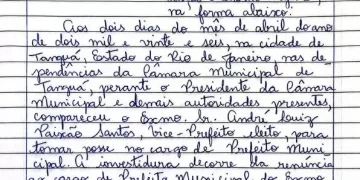 na forma abaixo:
Aos dois dias do mês de abril do ano
de dois mil e vinte e seis, na cidade de
Tanguá, Estado do Rio de Janeiro, nas de-
pendências da Câmara Municipal de
Tanguá, perante o Presidente da Câmara
Municipal e demais autoridades presentes,
compareceu o Exmo. Sr. André Luiz
Paixão Santos, Vice-Prefeito eleito, para
tomar posse no cargo de Prefeito Muni-
cipal. A investidura decorre da renúncia
ao cargo de Prefeito Municipal do Exmo